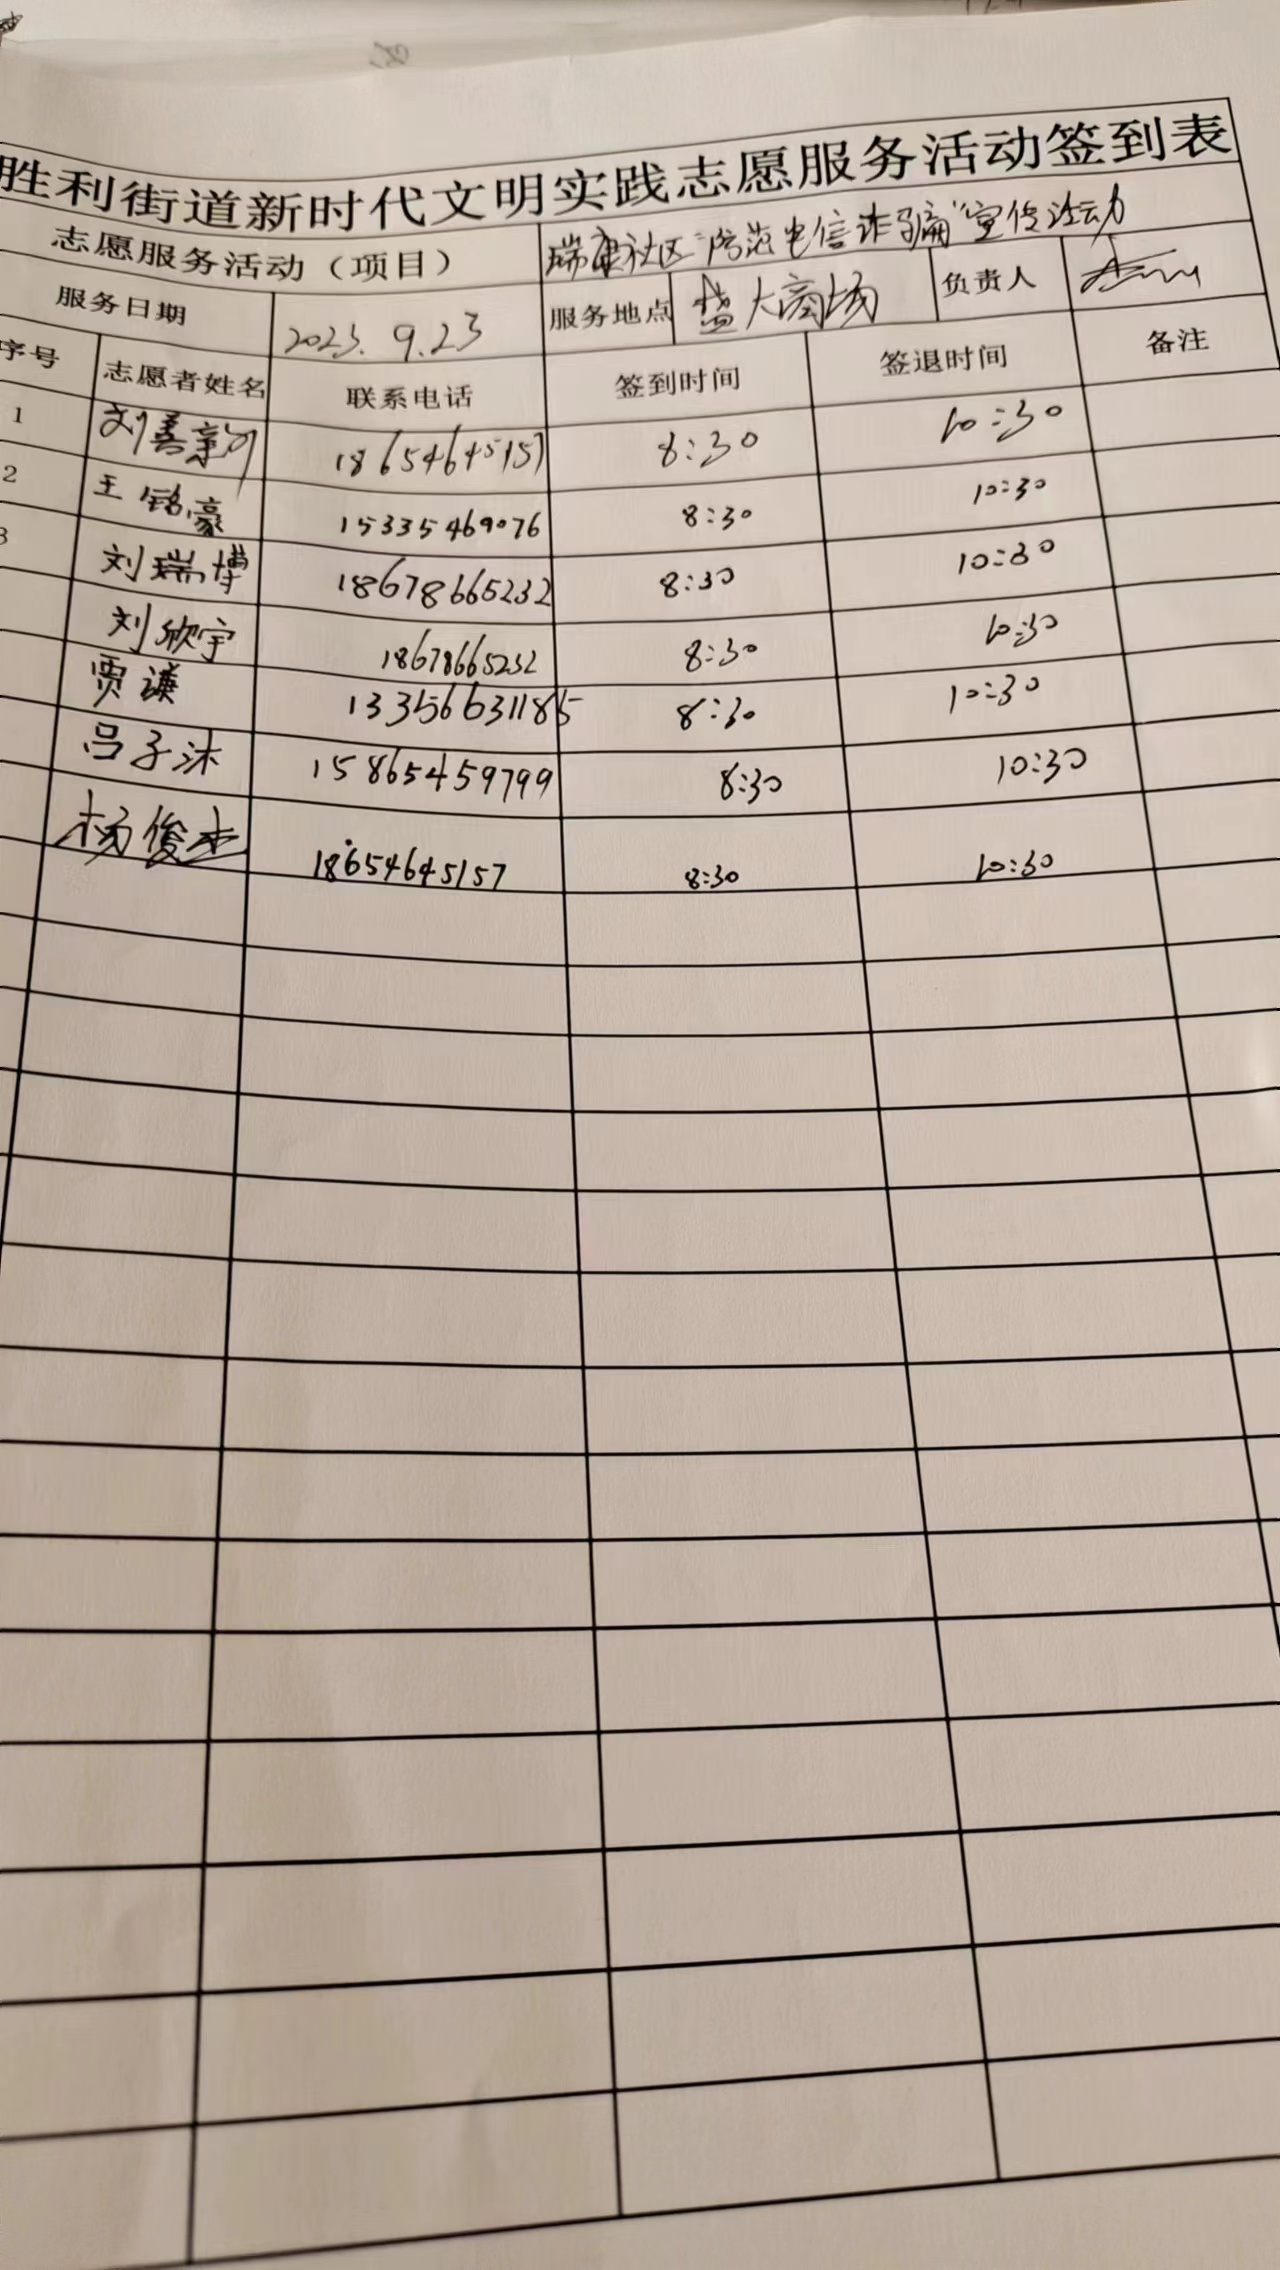 胜利街道新时代文明实践志愿服务活动签到表
志愿服务活动（项目） 瑞康社区“防范电信诈骗”宣传活动
服务日期 2023.9.23 服务地点 盛大商场 负责人
序号 志愿者姓名 联系电话 签到时间 签退时间 备注
1 刘善 18654645157 8:30 10:30
2 王铭豪 15335469076 8:30 10:30
3 刘瑞博 18678665232 8:30 10:30
刘欣宇 18678665232 8:30 10:30
贾谦 13356631185 8:30 10:30
吕子沐 15865459799 8:30 10:30
杨俊杰 18654645157 8:30 10:30